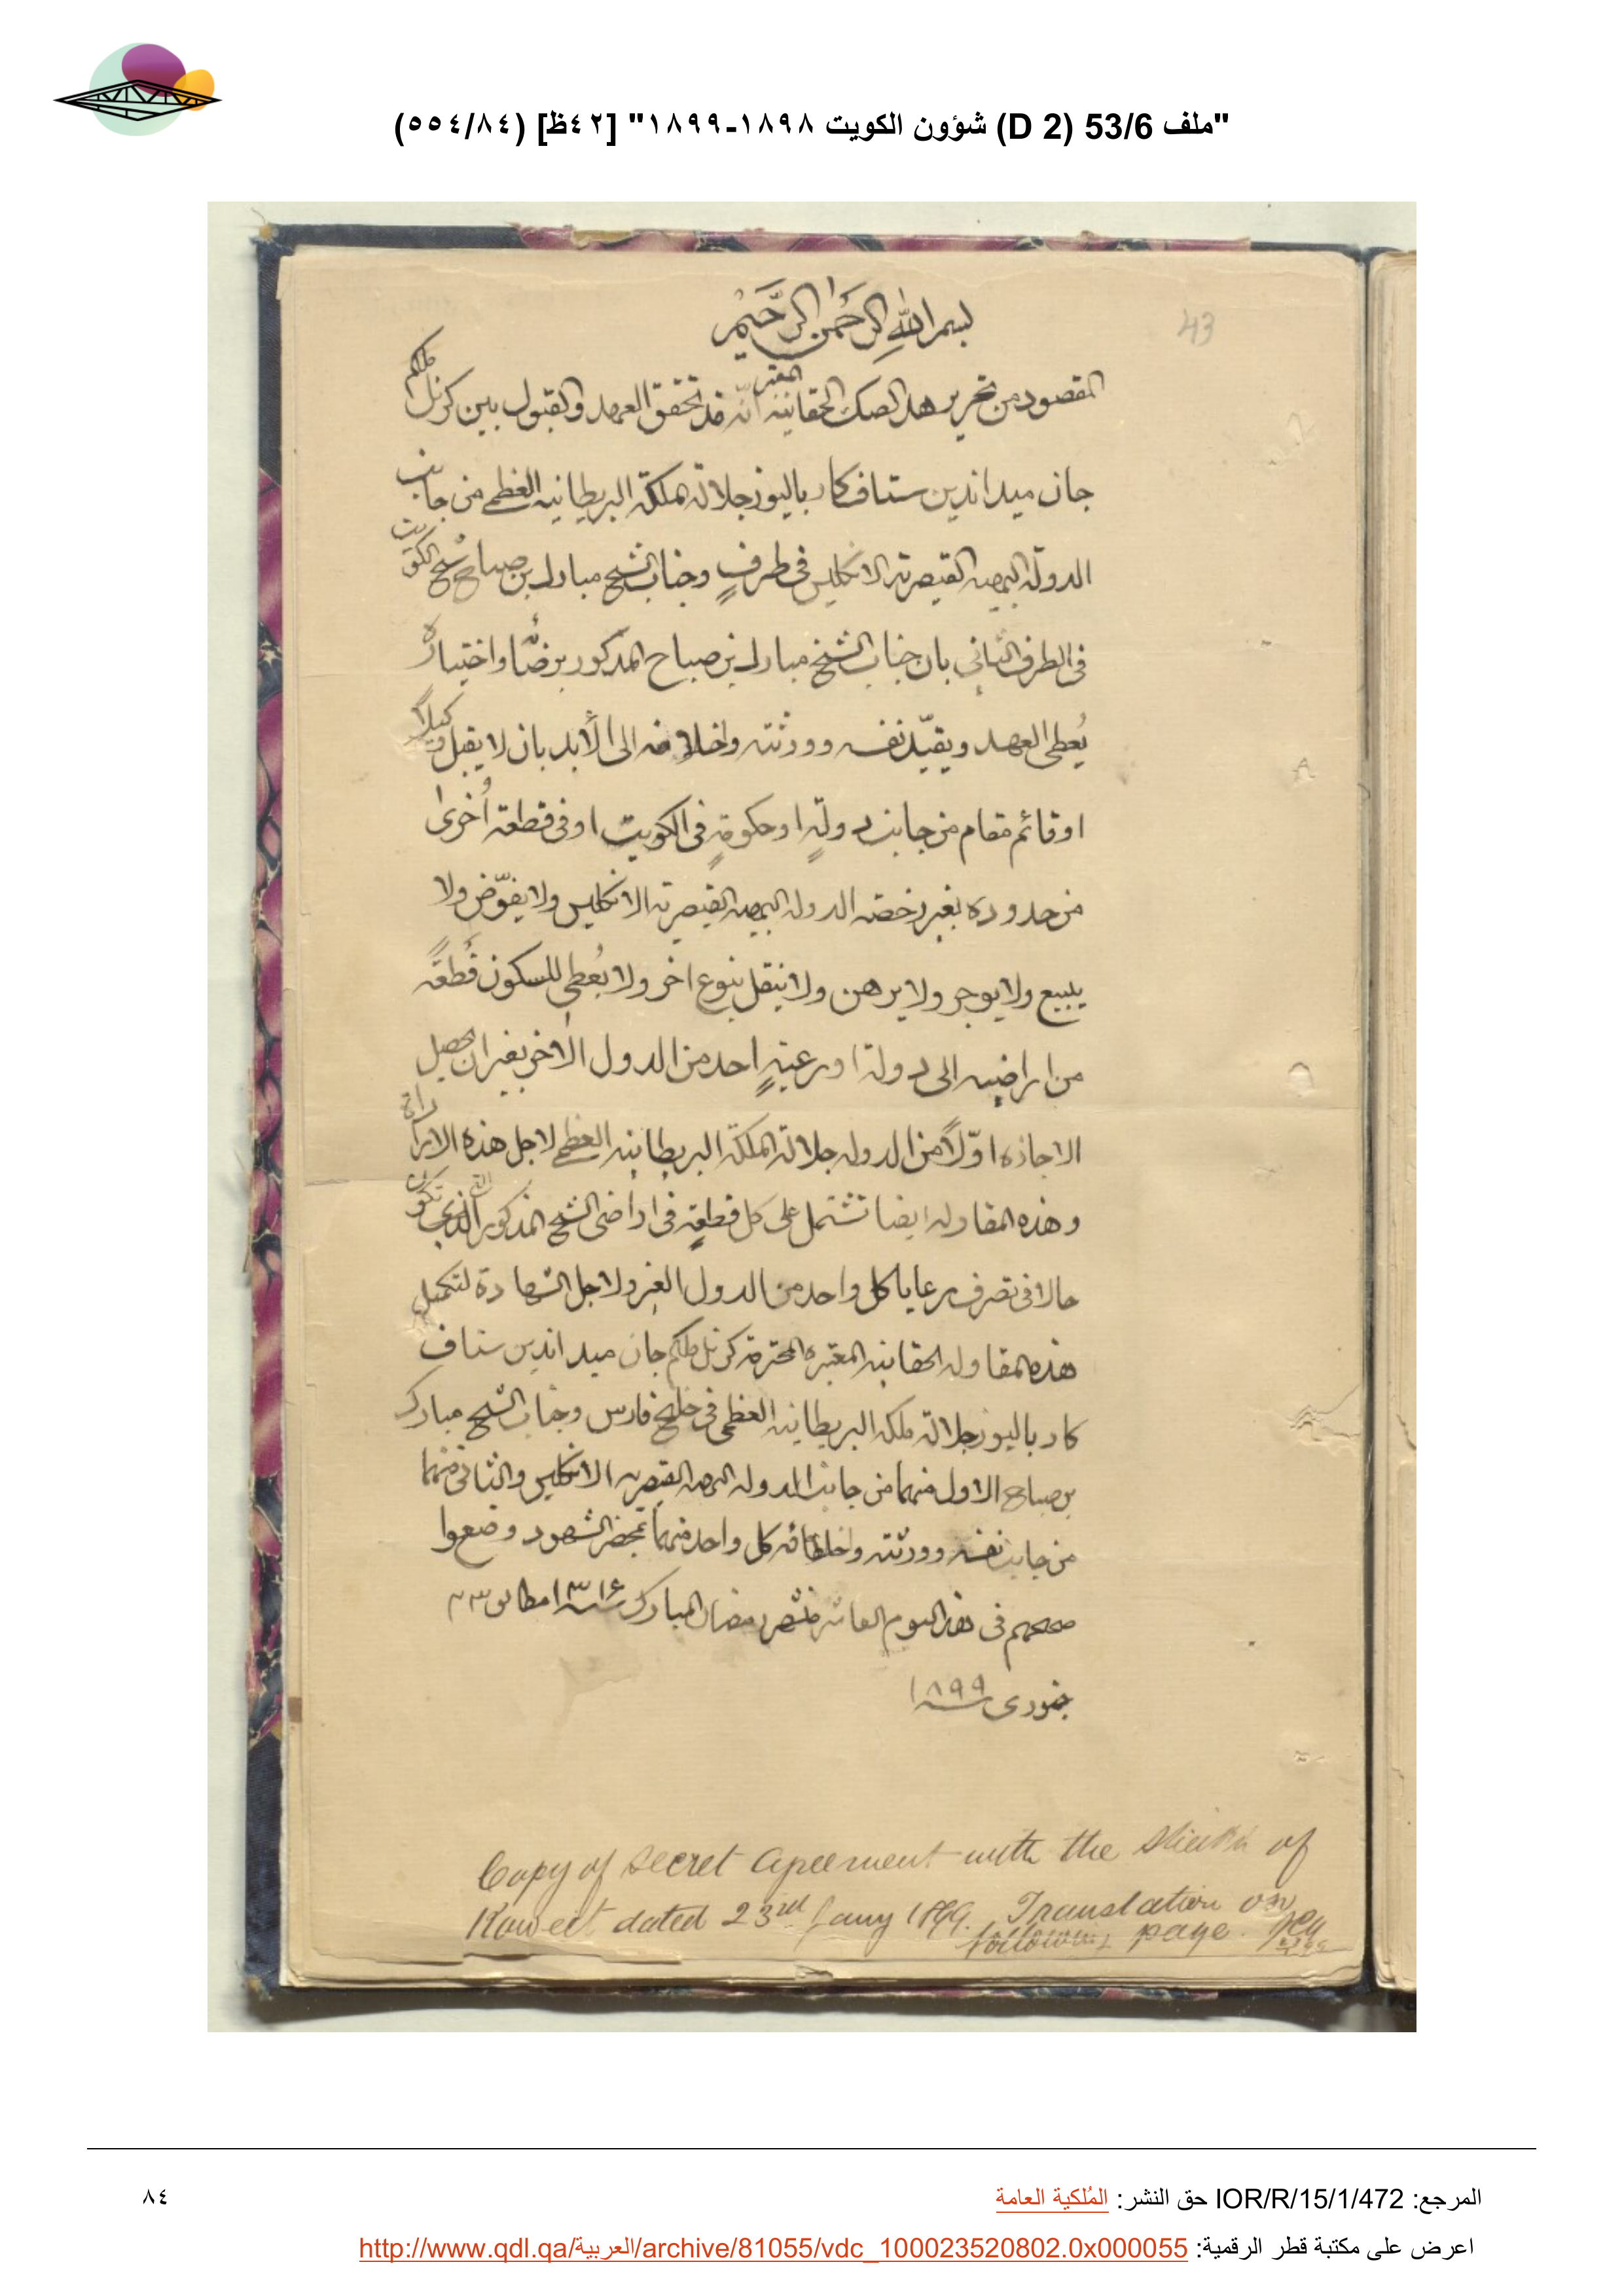 "ملف 53/6 (D 2) شؤون الكويت ١٨٩٨-١٨٩٩" [٤٢ظ] (٥٥٤/٨٤)
43
بسم الله الرَّحمٰن الرَّحِيم
المقصود من تحرير هذا الصك الحقانيه المعتبر انّه قد تحقق العهد والقبول بين كرنل ملكم
جان ميد اندين ستاف كار باليوز جلالة ملكة البريطانيه العظمى من جانب
الدولة البهيه القيصرية الانكليس فى طرفٍ وجناب الشيخ مبارك بن صباح شيخ الكويت
فى الطرف الثانى بان جناب الشيخ مبارك بن صباح المذكور برضًا واختياره
يُعطى العهد ويقيّد نفسه وورثته واخلافه الى الأبد بان لا يقبل وكيلاً
او قائم مقام من جانب دولةٍ او حكومةٍ فى الكويت او فى قطعة اُخرى
من حدوده بغير رخصة الدوله البهيه القيصرية الانكليس ولا يفوّض ولا
يبيع ولا يوجر ولا يرهن ولا ينقل بنوع اخر ولا يُعطى للسكون قُطعةً
من اراضيه الى دولة او رعيةٍ احد من الدول الاخر بغير ان يحصل
الاجازه اوّلاً من الدوله جلالة الملكة البريطانيه العظمى لاجل هذه الا
وهذه المقاوله ايضا تشتمل على كل قطعةٍ فى اراضى الشيخ المذكور التى تكون
حالا فى تصرف رعايا كل واحد من الدول الغير ولاجل الشهادة لتكميل
هذه المقاوله الحقانيه المعتبره المحترمة كرنل ملكم جان ميد اندين ستاف
كار باليوز جلالة ملكة البريطانيه العظمى فى خليج فارس وجناب الشيخ مبارك
بن صباح الاول منهما من جانب الدوله البهيه القيصريه الانكليس والثانى منهما
من جانب نفسه وورثته واخلافه كل واحد منهما بمحضر الشهود وضعوا
صححهم فى هذا اليوم العاشر من شهر رمضان المبارك سنه ١٣١٦ مطابق ٢٣
جنورى سنه ١٨٩٩
Copy of Secret Agreement with the Sheikh of
Koweit dated 23rd Jany 1899. Translation on
following page.
المرجع: IOR/R/15/1/472 حق النشر: المُلكية العامة
٨٤
اعرض على مكتبة قطر الرقمية: http://www.qdl.qa/العربية/archive/81055/vdc_100023520802.0x000055